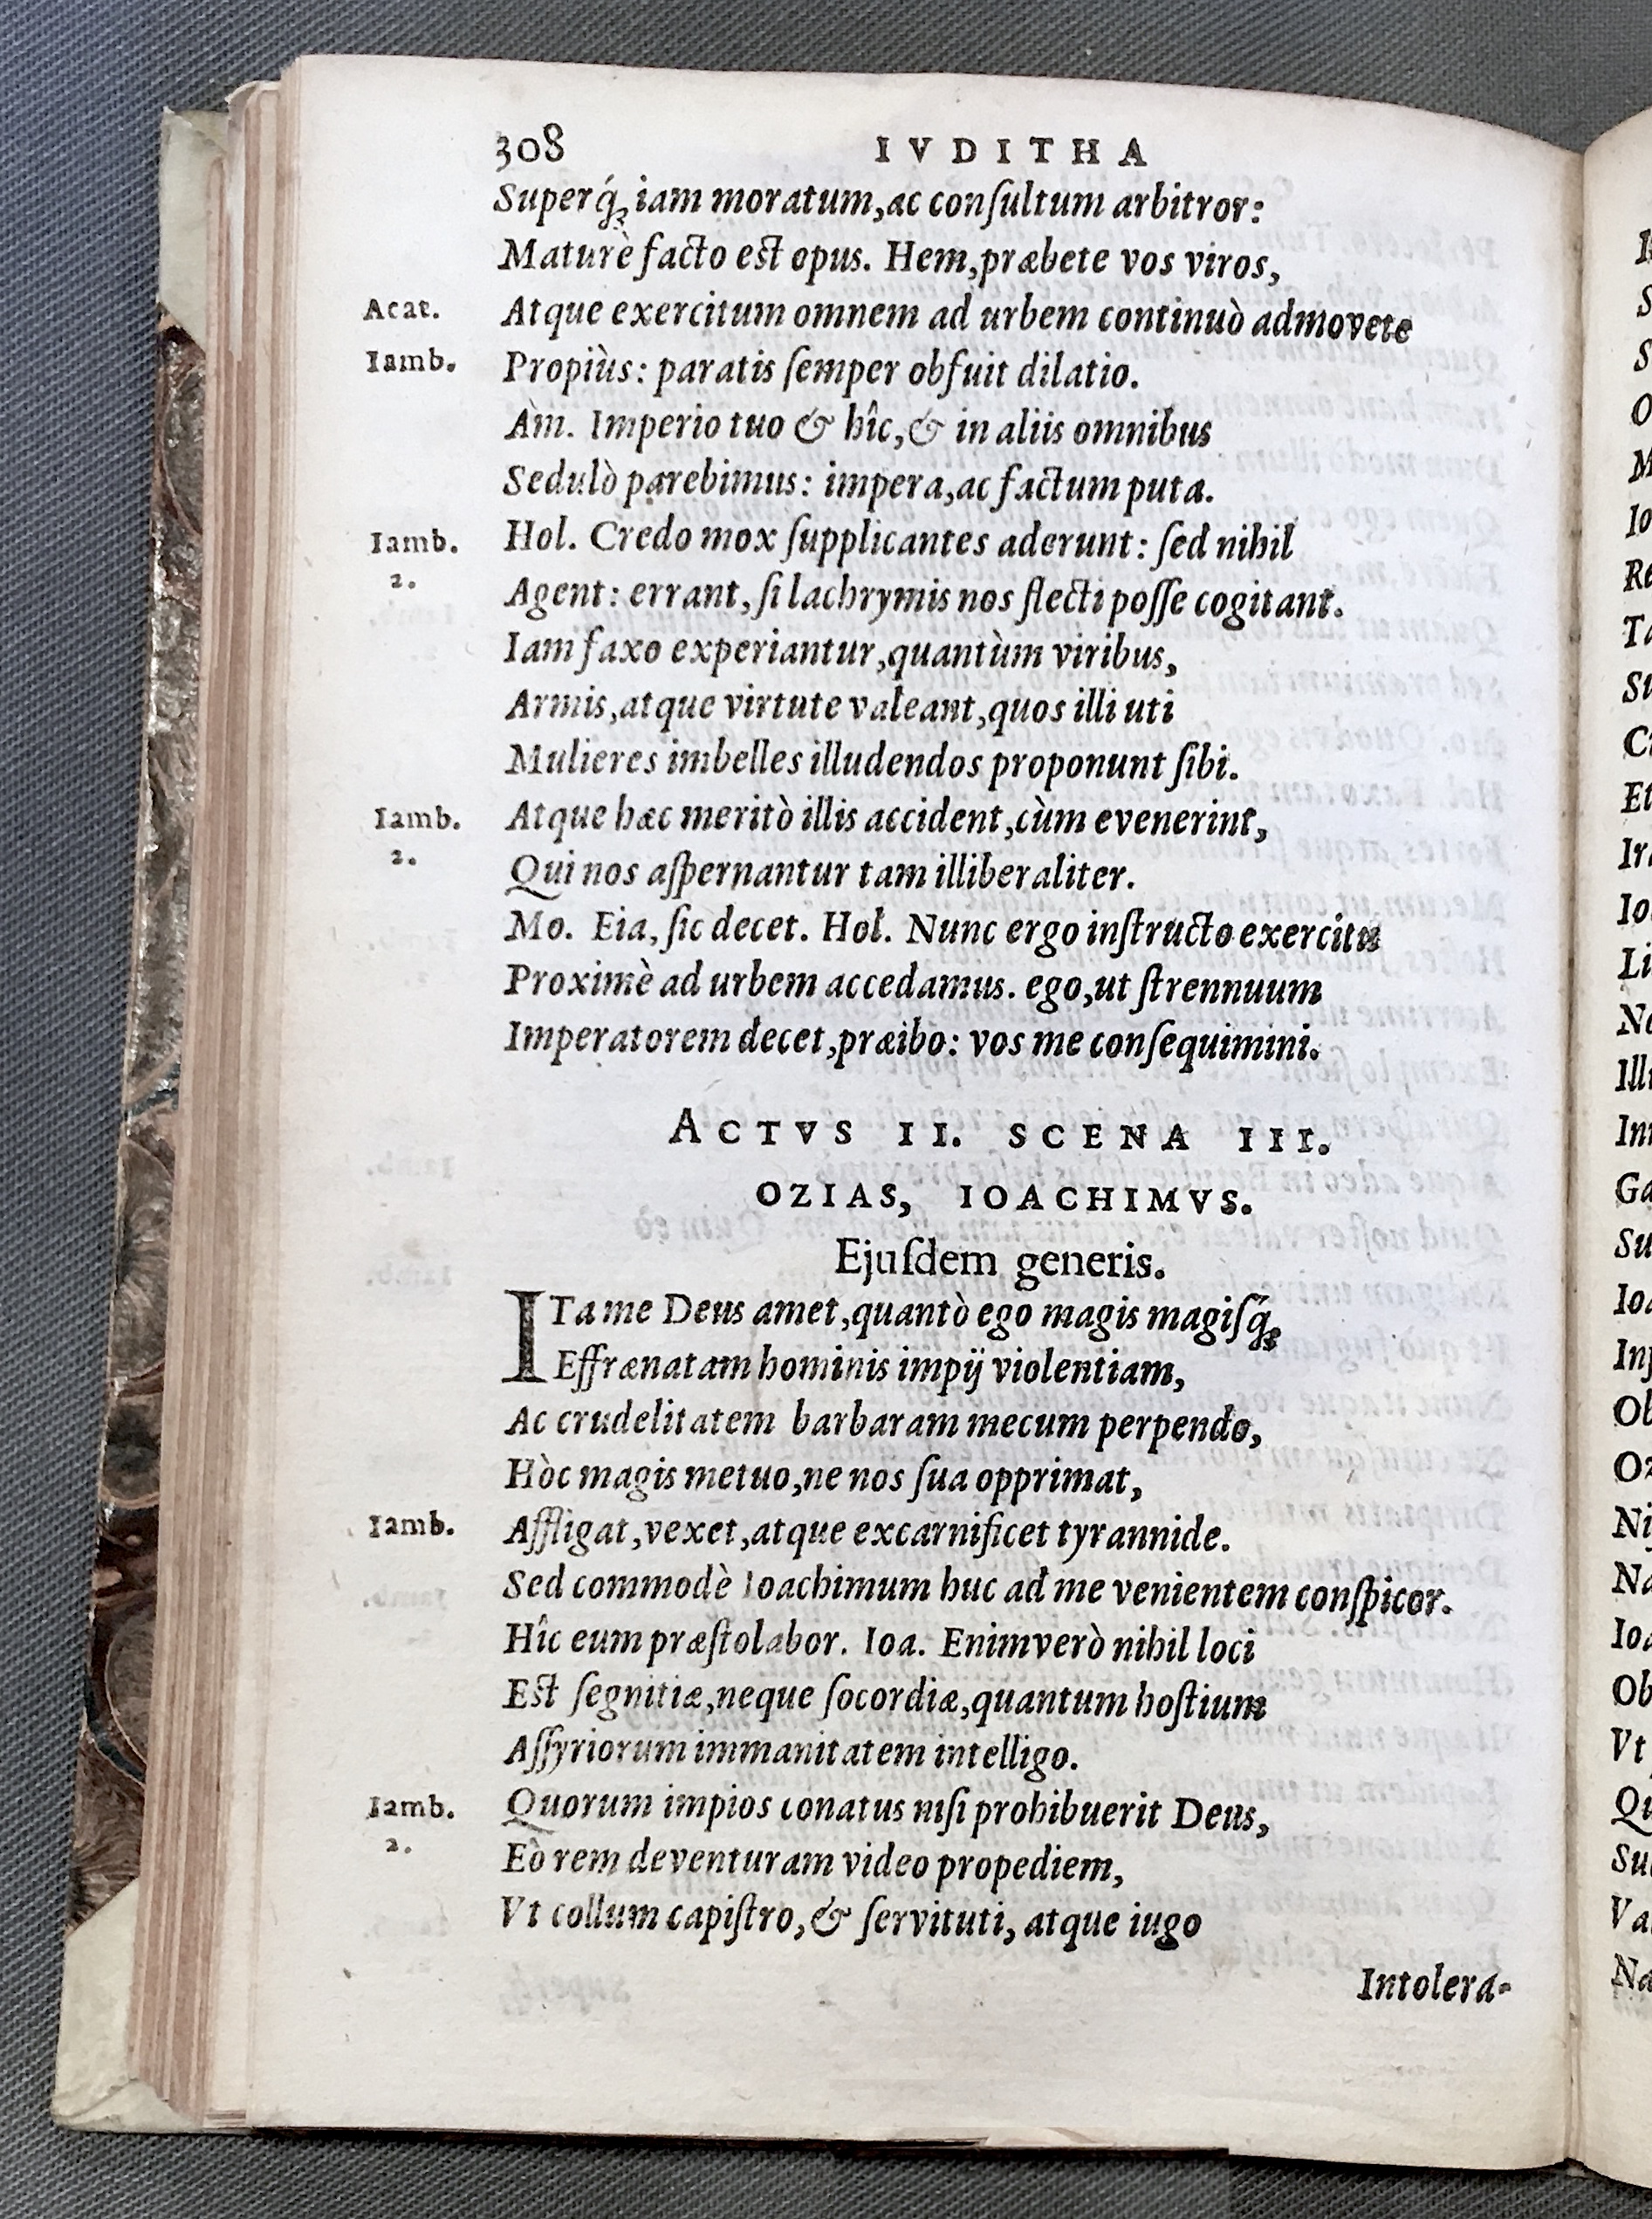 308 IVDITHA
Superq́; iam moratum, ac conſultum arbitror:
Maturè facto est opus. Hem, præbete vos viros,
Acat. Atque exercitum omnem ad urbem continuò admovete
Iamb. Propiùs: paratis ſemper obfuit dilatio.
Am. Imperio tuo & hîc, & in aliis omnibus
Sedulò parebimus: impera, ac factum puta.
Iamb. Hol. Credo mox ſupplicantes aderunt: ſed nihil
2. Agent: errant, ſi lachrymis nos flecti poſſe cogitant.
Iam faxo experiantur, quantùm viribus,
Armis, atque virtute valeant, quos illi uti
Mulieres imbelles illudendos proponunt ſibi.
Iamb. Atque hæc meritò illis accident, cùm evenerint,
2. Qui nos aſpernantur tam illiberaliter.
Mo. Eia, ſic decet. Hol. Nunc ergo inſtructo exercitu
Proximè ad urbem accedamus. ego, ut ſtrennuum
Imperatorem decet, præibo: vos me conſequimini.
ACTVS II. SCENA III.
OZIAS, IOACHIMVS.
Ejuſdem generis.
ITa me Deus amet, quantò ego magis magiſq́;
Effrænatam hominis impij violentiam,
Ac crudelitatem barbaram mecum perpendo,
Hòc magis metuo, ne nos ſua opprimat,
Iamb. Affligat, vexet, atque excarnificet tyrannide.
Sed commodè Ioachimum huc ad me venientem conſpicor.
Hîc eum præſtolabor. Ioa. Enimverò nihil loci
Est ſegnitiæ, neque ſocordiæ, quantum hoſtium
Aſſyriorum immanitatem intelligo.
Iamb. Quorum impios conatus niſi prohibuerit Deus,
2. Eò rem deventuram video propediem,
Vt collum capiſtro, & ſervituti, atque iugo
Intolera-